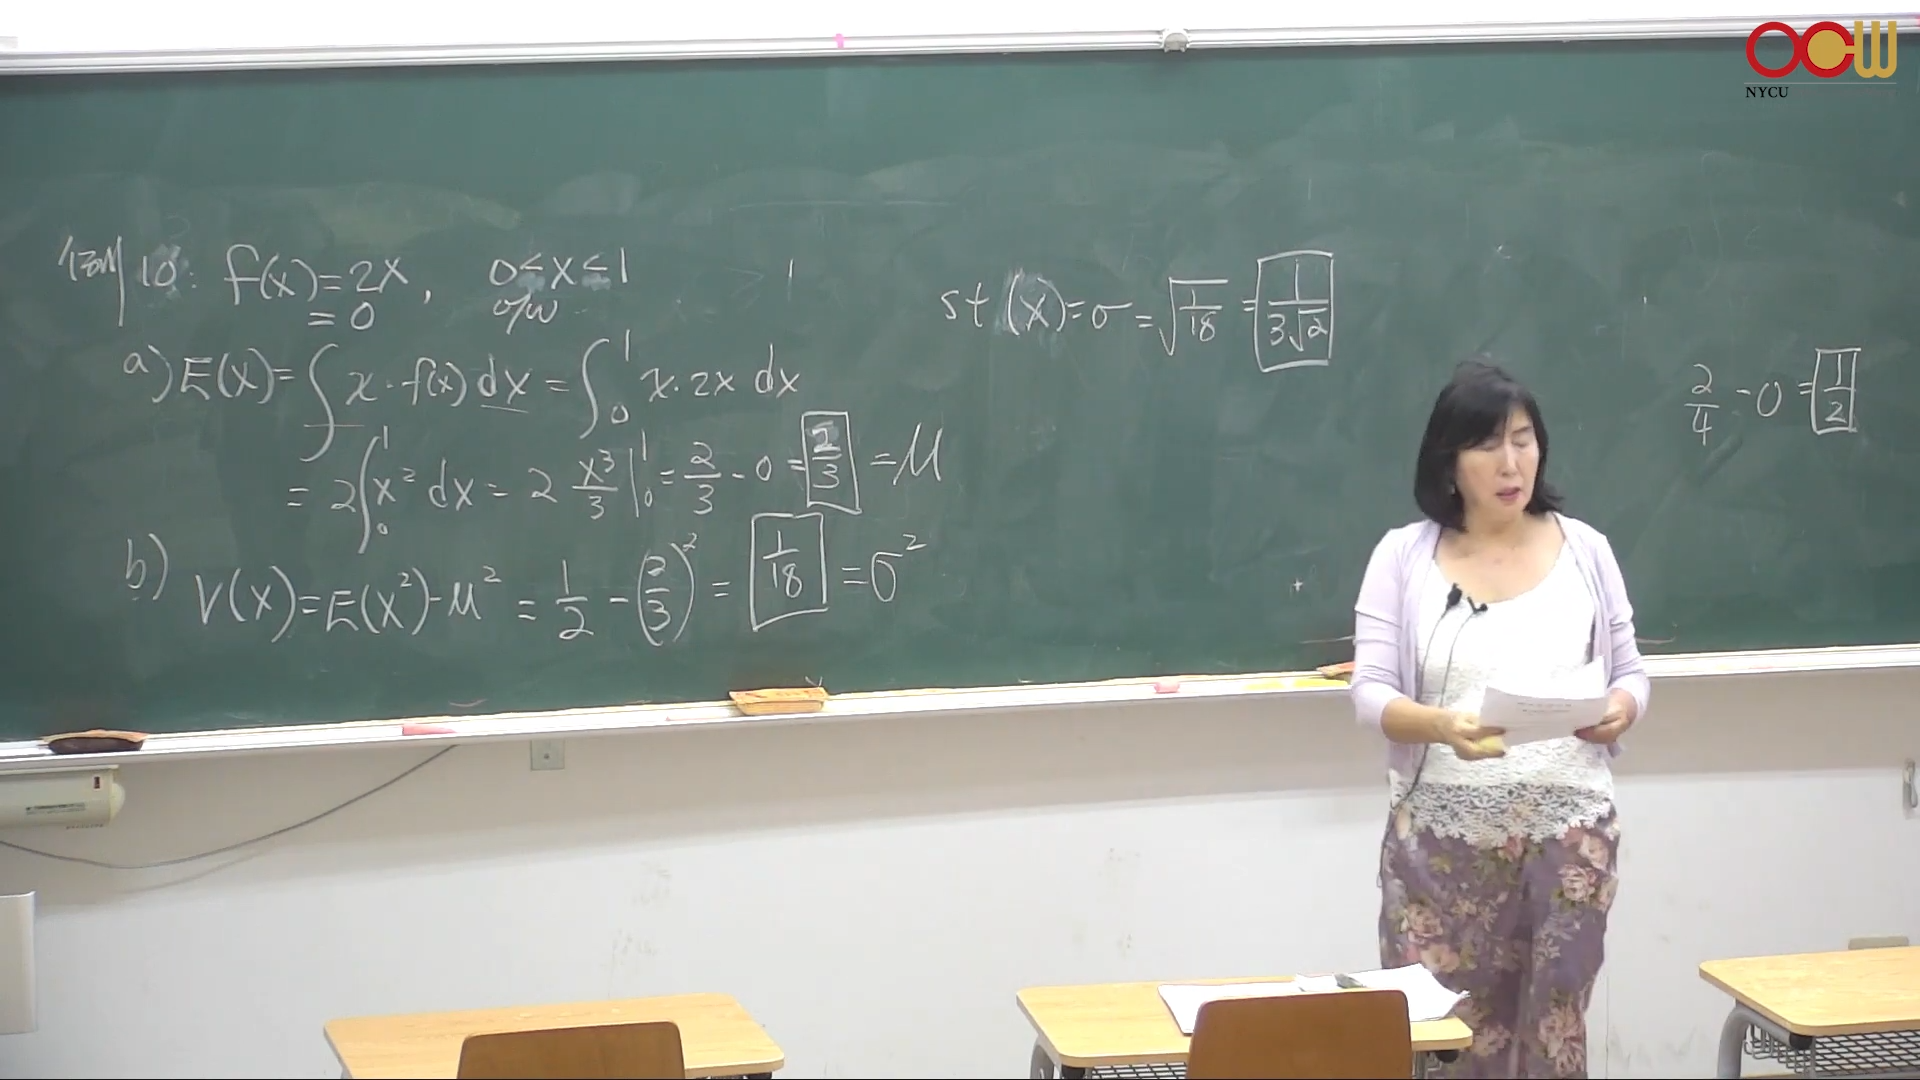 例 10: f(x) = 2x, 0 ≤ x ≤ 1
= 0 o/w
a) E(X) = ∫ x · f(x) dx = ∫₀¹ x · 2x dx
= 2 ∫₀¹ x² dx = 2 x³/3 |₀¹ = 2/3 - 0 = 2/3 = μ
b) V(X) = E(X²) - μ² = 1/2 - (2/3)² = 1/18 = σ²
st (X) = σ = √(1/18) = 1/(3√2)
2/4 - 0 = 1/2
OCW
NYCU